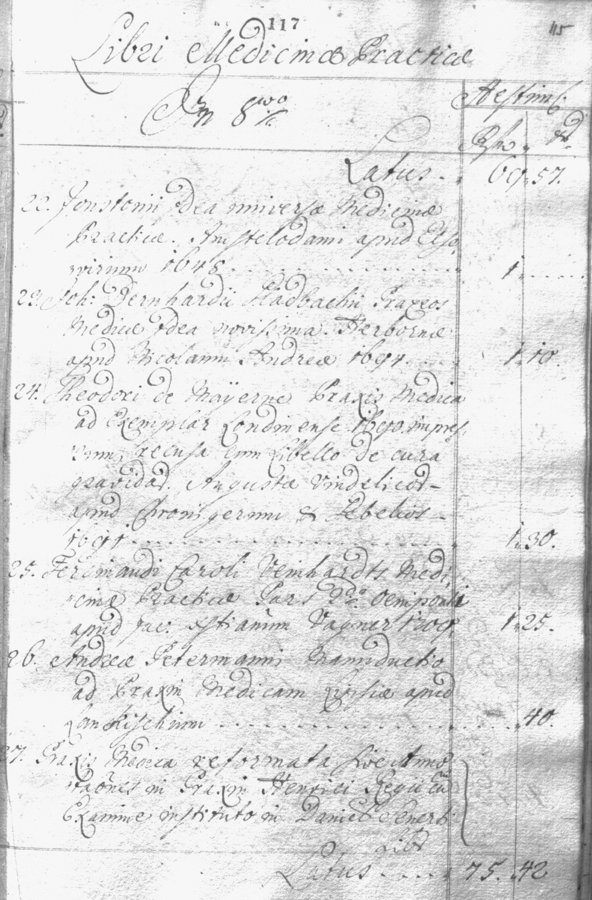 117
115
Libri Medicinæ Practicæ
Aestim.
In 8vo
Rfno. d.
Latus. 69. 57.
22. Jonstonii Idea universæ Medicinæ
Practicæ. Amstelodami apud Else,
virium 1648. 1.
23. Joh: Bernhardii Gladbachii Praxeos
Medicæ Idea novissima. Herbornæ
apud Nicolaum Andreæ 1694. 1. 10.
24. Theodori de Mayerne Praxis Medica
ad Exemplar Londinense impres,
sum, recusa cum Libello de cura
gravidar. Augustæ Vindelicor
apud Kronigerum & Göbelios
1691 1. 30.
25. Ferdinandi Caroli Weinhardts Medi,
cinæ Practicæ Pars Oeniponti
apud Jac: Christianum Wagner 1. 25.
26. Andreæ Petermanni Manuductio
ad Praxin Medicam Lipsiæ apud
Lankischium 40.
27. Praxis Medica reformata
in Praxin Henrici Regii cum
Examine instituto in Daniel Senert
Latus 75. 42